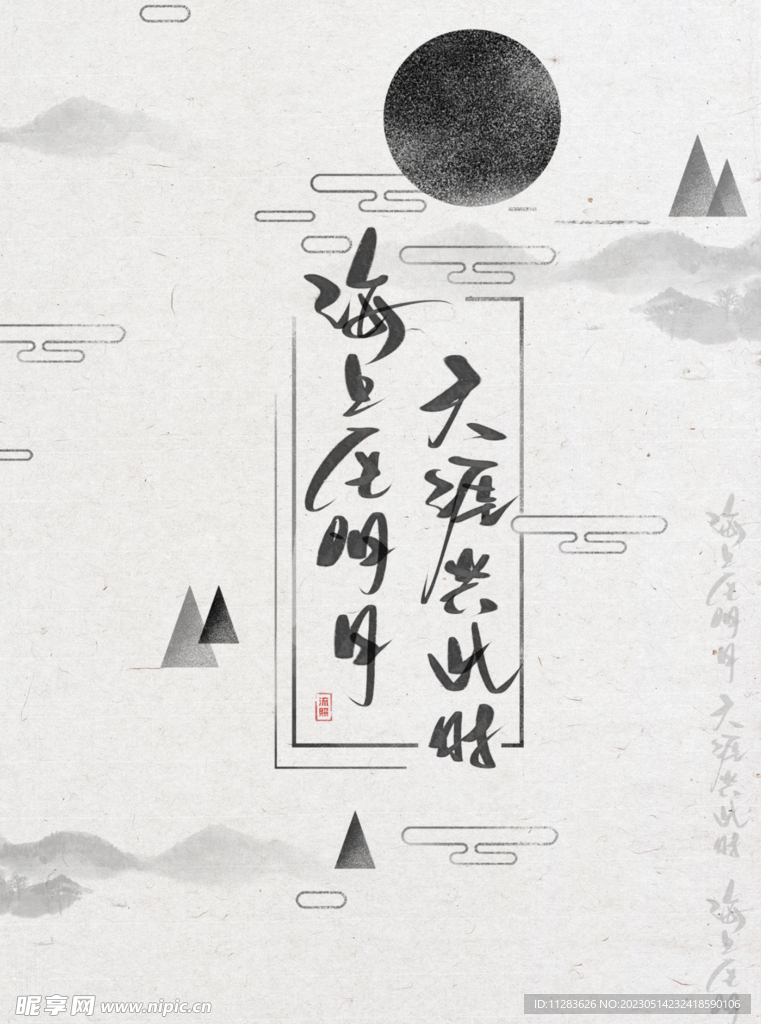 海上生明月
天涯共此时
流照
海上生明月
天涯共此时
海上生明
昵享网 www.nipic.cn
ID:11283626 NO:20230514232418590106